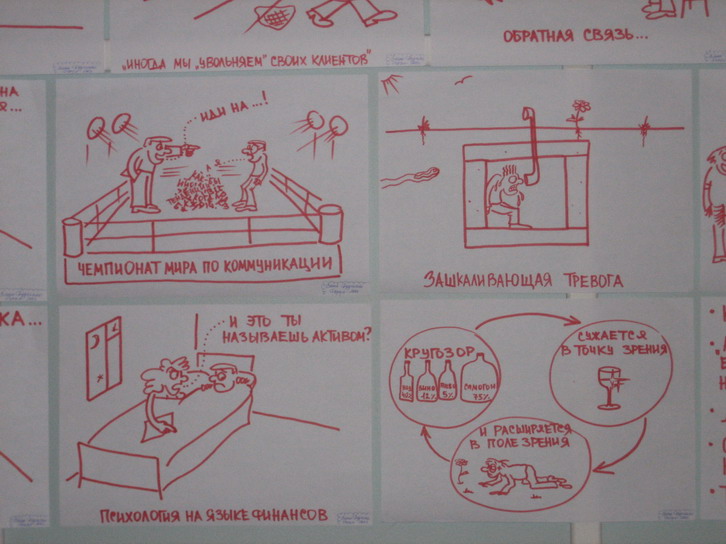 „ИНОГДА МЫ „УВОЛЬНЯЕМ" СВОИХ КЛИЕНТОВ"
ОБРАТНАЯ СВЯЗЬ...
НА
ИДИ НА...!
ЧЕМПИОНАТ МИРА ПО КОММУНИКАЦИИ
ЗАШКАЛИВАЮЩАЯ ТРЕВОГА
КА...
И ЭТО ТЫ
НАЗЫВАЕШЬ АКТИВОМ?
ПСИХОЛОГИЯ НА ЯЗЫКЕ ФИНАНСОВ
КРУГОЗОР
ВИНО
12%
ПИВО
5%
САМОГОН
75%
СУЖАЕТСЯ
В ТОЧКУ ЗРЕНИЯ
И РАСШИРЯЕТСЯ
В ПОЛЕ ЗРЕНИЯ